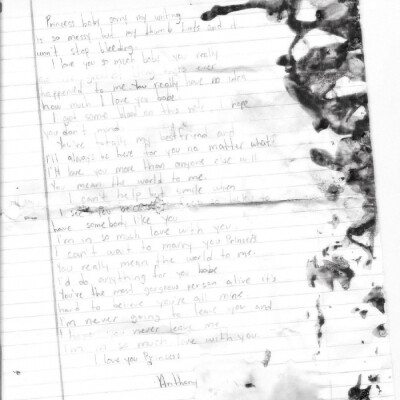 Princess baby sorry my writing
is so messy but my thumb hurts and it
won't stop bleeding.
I love you so much babe you really
ever
happened to me really have no idea
how much I love you babe
I got some blood on this note I hope
you don't mind
You're my bestfriend and
I'll always be here for you no matter what
I'll love you more than anyone else will
You mean the world to me.
I can't help but smile when
I see
have somebody like you
I'm in so much love with you
I can't wait to marry you Princess
You really mean the world to me.
I'd do anything for you babe
You're the most gorgeous person alive it's
hard to believe you're all mine
I'm never going to leave you and
I hope you never leave me
I'm in so much love with you
I love you Princess
Anthony